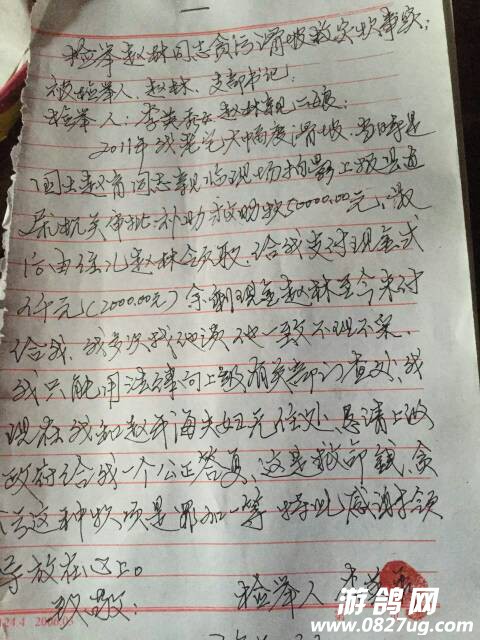 一
检举赵林同志贪污滑坡救灾款事实:
被检举人、赵林、支部书记:
检举人:李英 赵林亲二娘:
2011年我老宅大幅度滑坡、当时是
国土赵 同志亲临现场拍影上报县道
机关审批补助救助款50000.00元、最
后由侄儿赵林领取、给我支付现金弍
仟元(2000.00元)余剩现金赵林至今未付
给我、我多次找他谈他一致不理不采、
我只能用法津向上级有关部门查处、我
现在我和赵 海夫妇无住处、恳请上级
政府给我一个公正答复、这是救命錢、贪
污这种款项是罪加一等 特此感谢领
导放在心上。
致敬: 检举人 李
124.4
游鸽网
www.0827ug.com